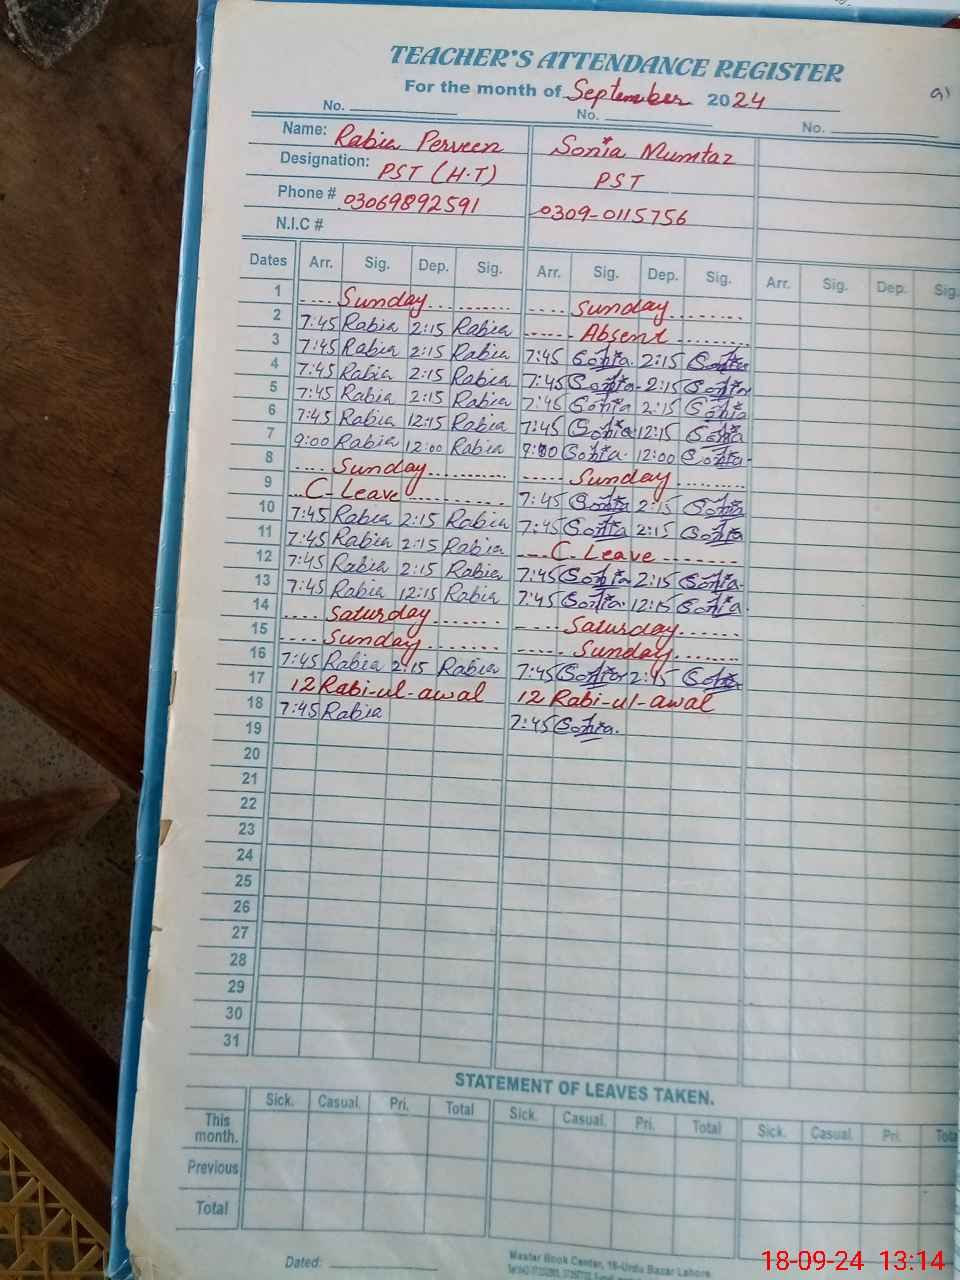 TEACHER'S ATTENDANCE REGISTER
For the month of September 2024
No. No. No.
Name: Rabia Perveen Sonia Mumtaz
Designation: PST (H.T) PST
Phone # 03069892591 0309-0115756
N.I.C #
Dates Arr. Sig. Dep. Sig. Arr. Sig. Dep. Sig. Arr. Sig. Dep. Sig.
1 Sunday Sunday
2 7:45 Rabia 2:15 Rabia Absent
3 7:45 Rabia 2:15 Rabia 7:45 Sonia 2:15 Sonia
4 7:45 Rabia 2:15 Rabia 7:45 Sonia 2:15 Sonia
5 7:45 Rabia 2:15 Rabia 7:45 Sonia 2:15 Sonia
6 7:45 Rabia 12:15 Rabia 7:45 Sonia 12:15 Sonia
7 9:00 Rabia 12:00 Rabia 9:00 Sonia 12:00 Sonia
8 Sunday Sunday
9 C-Leave 7:45 Sonia 2:15 Sonia
10 7:45 Rabia 2:15 Rabia 7:45 Sonia 2:15 Sonia
11 7:45 Rabia 2:15 Rabia C-Leave
12 7:45 Rabia 2:15 Rabia 7:45 Sonia 2:15 Sonia
13 7:45 Rabia 12:15 Rabia 7:45 Sonia 12:15 Sonia
14 Saturday Saturday
15 Sunday Sunday
16 7:45 Rabia 2:15 Rabia 7:45 Sonia 2:45 Sonia
17 12 Rabi-ul-awal 12 Rabi-ul-awal
18 7:45 Rabia 7:45 Sonia
19
20
21
22
23
24
25
26
27
28
29
30
31
STATEMENT OF LEAVES TAKEN.
Sick. Casual. Pri. Total Sick. Casual. Pri. Total Sick. Casual. Pri. Total
This month.
Previous
Total
Dated:
Master Book Center, 16-Urdu Bazar Lahore
18-09-24 13:14